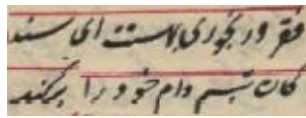 فقر و رنجوری بهستت ای سند
کان تبسم دام خود را برکند